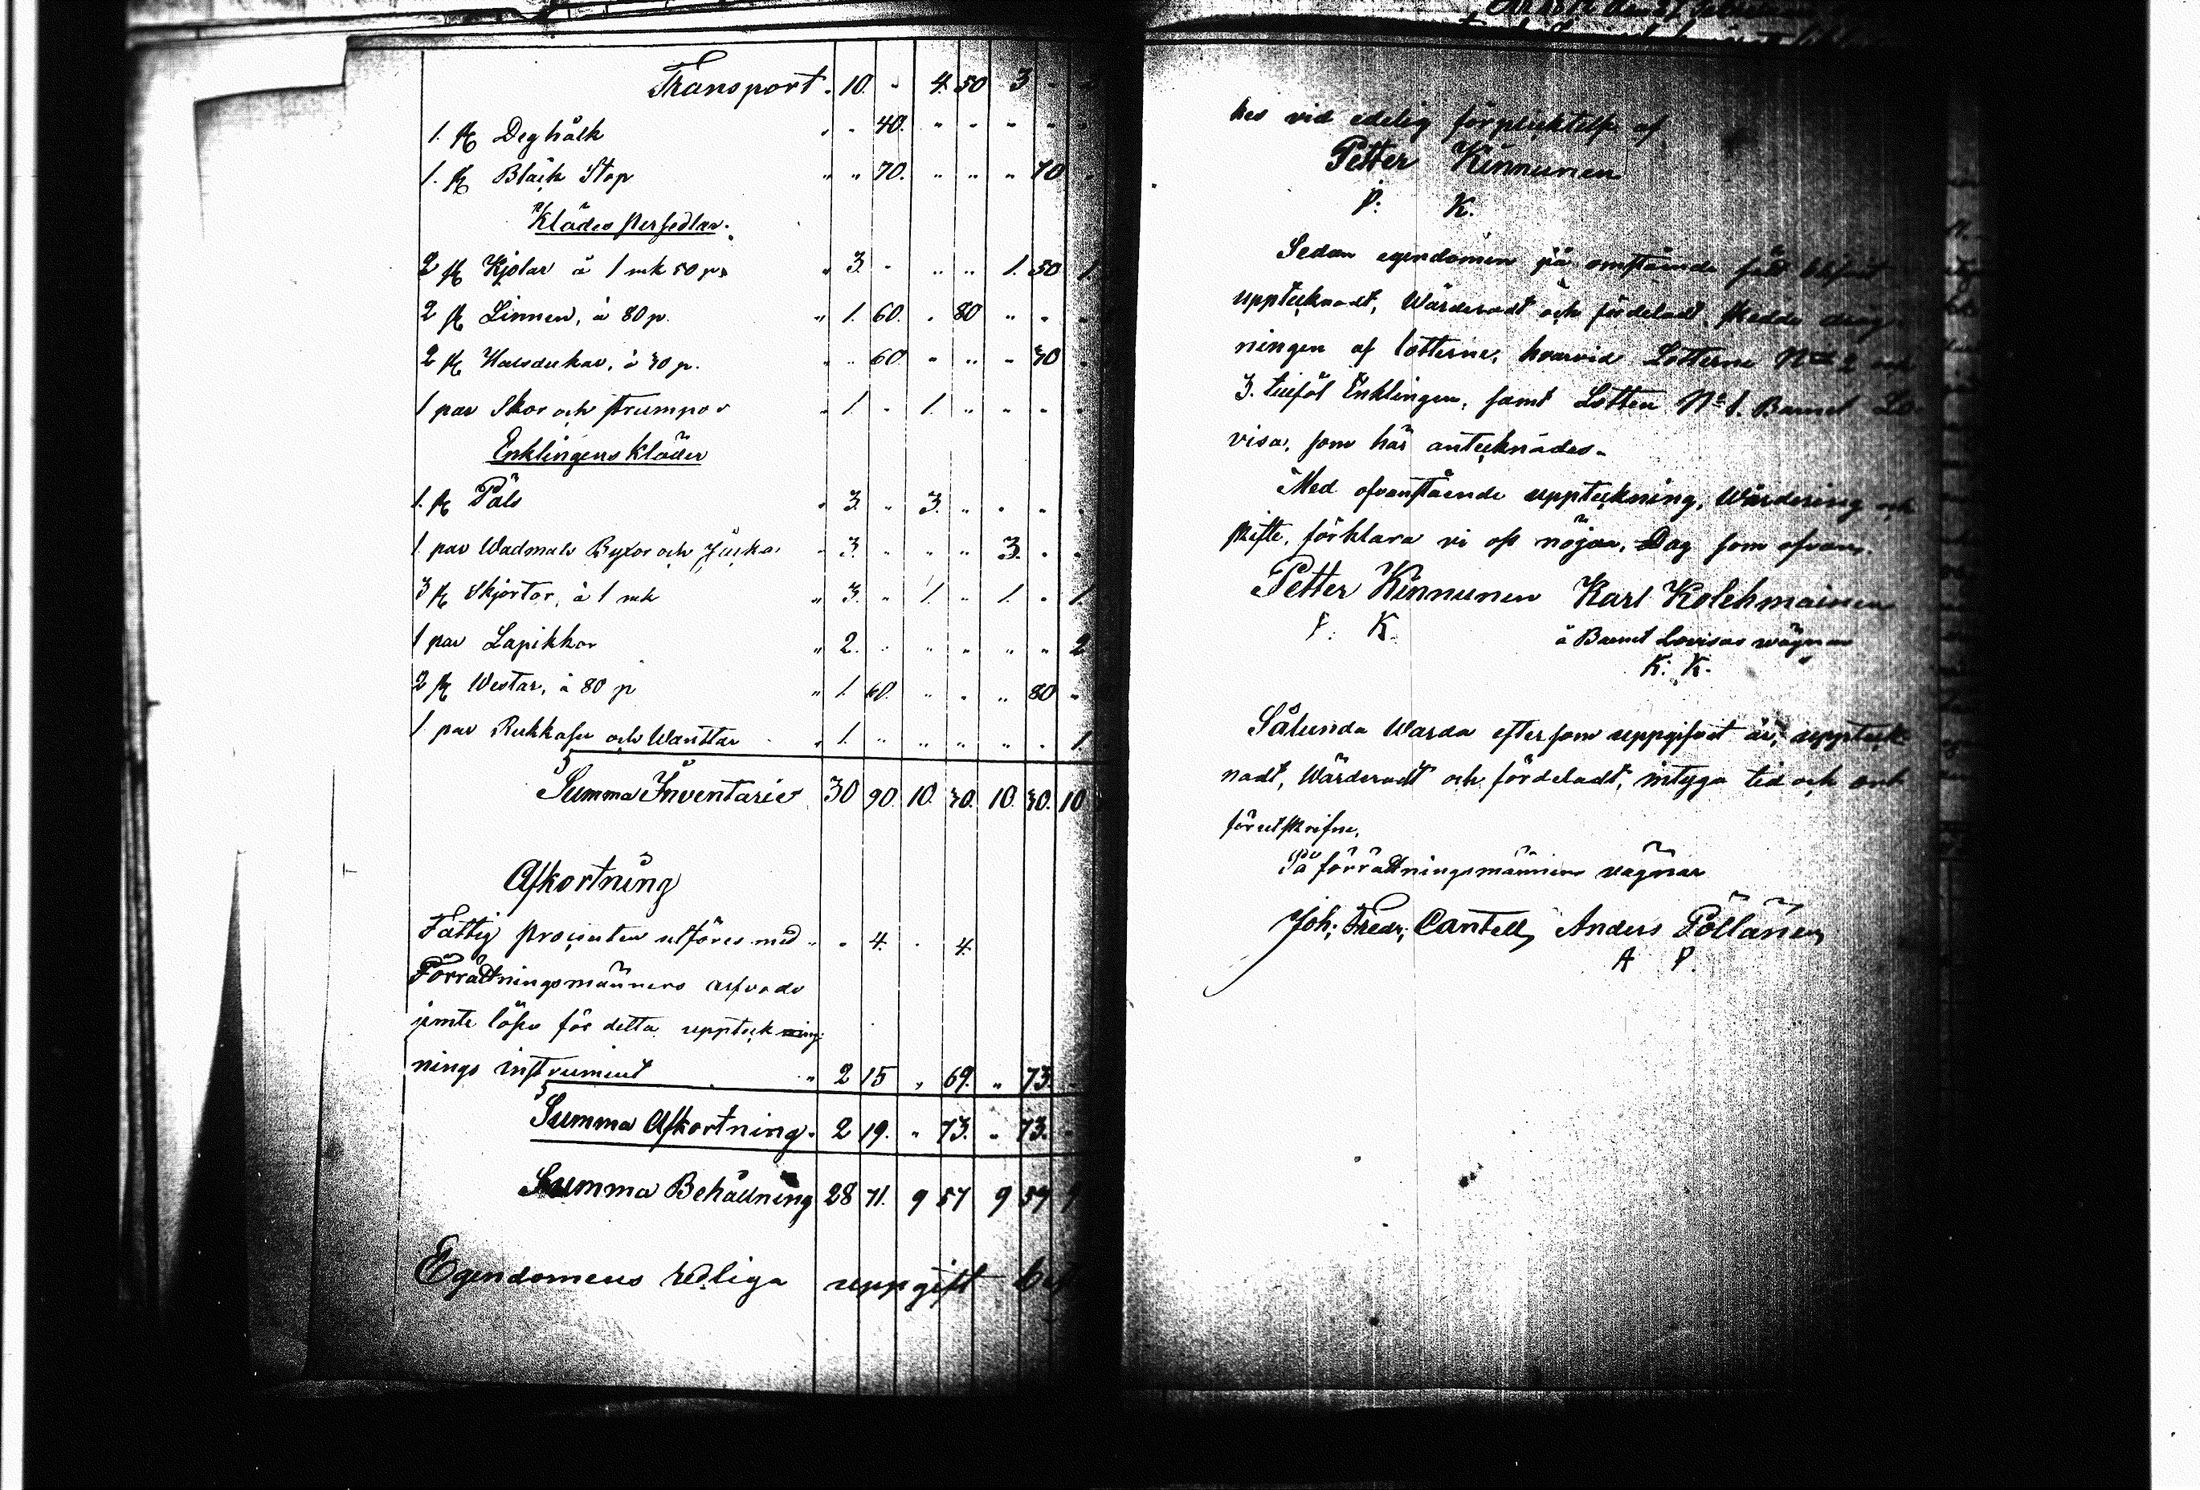 Transport " 10. " 4. 50 3 " "
1. st Deghålk " " 40. " " " " "
1. st Bläck Stop " " 70. " " " 70 "
Klädes persedlar.
2 st Kjolar à 1 mk 50 p " 3. " " " 1. 50 1.
2 st Linnen, à 80 p. " 1. 60. " 80 " " "
2 st Halsdukar, à 30 p. " " 60 " " " 30 "
1 par Skor och strumpor " 1. " 1. " " " "
Enklingens Kläder
1. st Päls " 3. " 3. " " " "
1. par Wadmals Byxor och " 3. " " " 3. " "
3 st Skjortor, à 1 mk " 3. " 1. " 1. " 1.
1 par Lapikkar " 2. " " " " " 2
2 st Westar, à 80 p " 1. 60. " " " 80 "
1 par Rukkaser och Wanttar " 1. " " " " " 1.
Summa Inventarie 30 90. 10. 30. 10. 30. 10
Afkortning
Fattig procenten utföres med " " 4. " 4.
Förrättningsmännens arfvode
jemte lösen för detta uppteck
nings instrument " 2 15 " 69. " 73.
Summa Afkortning. 2 19. " 73. " 73. "
Summa Behållning 28 71. 9 57 9 57 9
Egendomens redliga uppgift
kes vid edelig förpliktelse af
Petter Kinnunen
P. K.
Sedan egendomen på omstående sätt blifvit
upptecknadt, Wärderadt och fördeladt, skedde drag-
ningen af lotterne, hvarvid Lotterne N 2 och
3. tillföl Enklingen, samt Lotten N 1. Barnet Lo-
visa, som här antecknades.
Med ofvanstående uppteckning, Wärdering och
skifte, förklara vi oss nöjda, Dag som ofvan.
Petter Kinnunen Karl Kolehmainen
P. K. å Barnet Lovisas wägnar
K. K.
Sålunda Warda efter som uppgifvet är, uppteck-
nadt, Wärderadt och fördeladt, intyga tid och ort
förutskrifne.
På förrättningsmännens vägnar
Joh. Fredr. Cantell, Anders Pöllänen
A P.